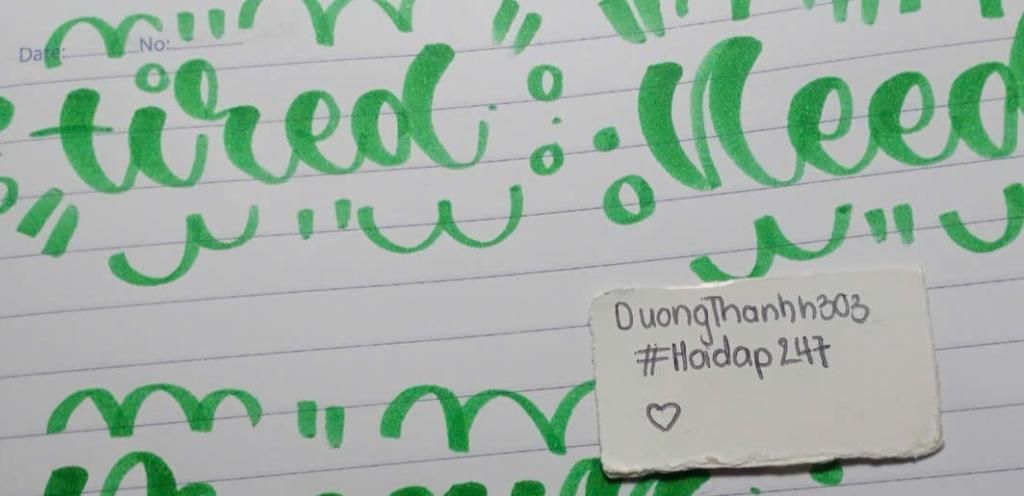 Date: No:
tired : Need
DuongThanhh303
#Hoidap247